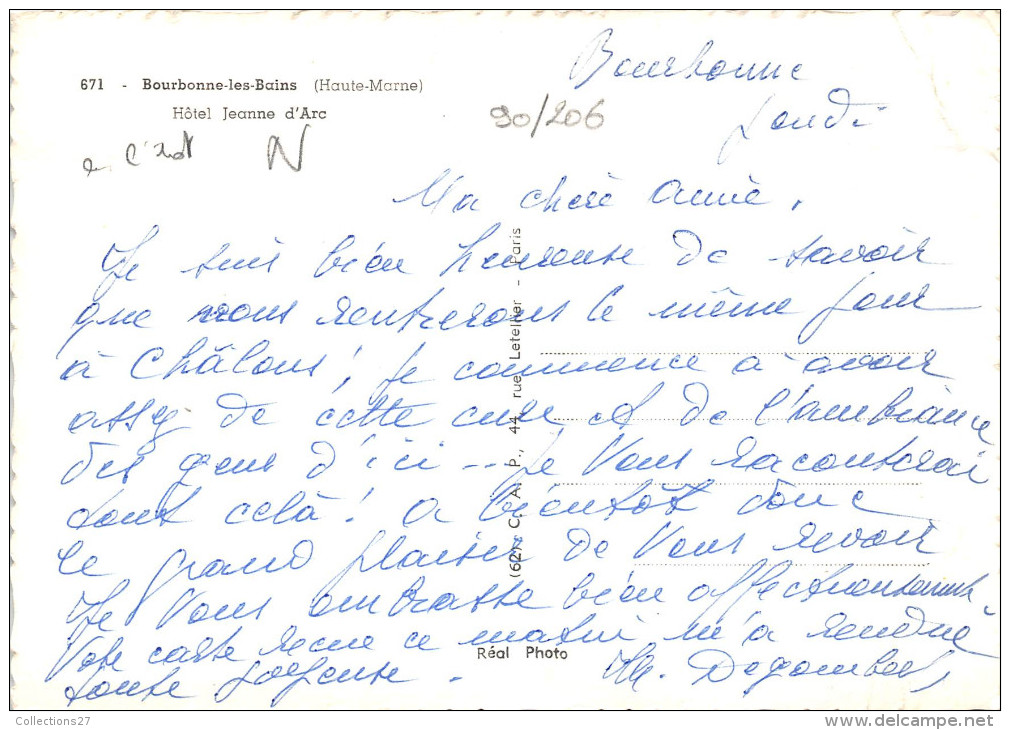 671 - Bourbonne-les-Bains (Haute-Marne)
Hôtel Jeanne d'Arc
90/206
N
Bourbonne
Lundi
Ma chère Annie,
Je suis bien heureuse de savoir
que nous rentrerons le même jour
à Châlons! Je commence à avoir
assez de cette cure et de l'ambiance
des gens d'ici -- Je vous raconterai
tout celà! A bientôt donc
le grand plaisir de vous revoir
Je vous embrasse bien affectueusement.
Votre carte reçue ce matin m'a rendue
toute joyeuse.
(627) C. A. P., 44, rue Letellier - Paris
Réal Photo
Collections27
www.delcampe.net